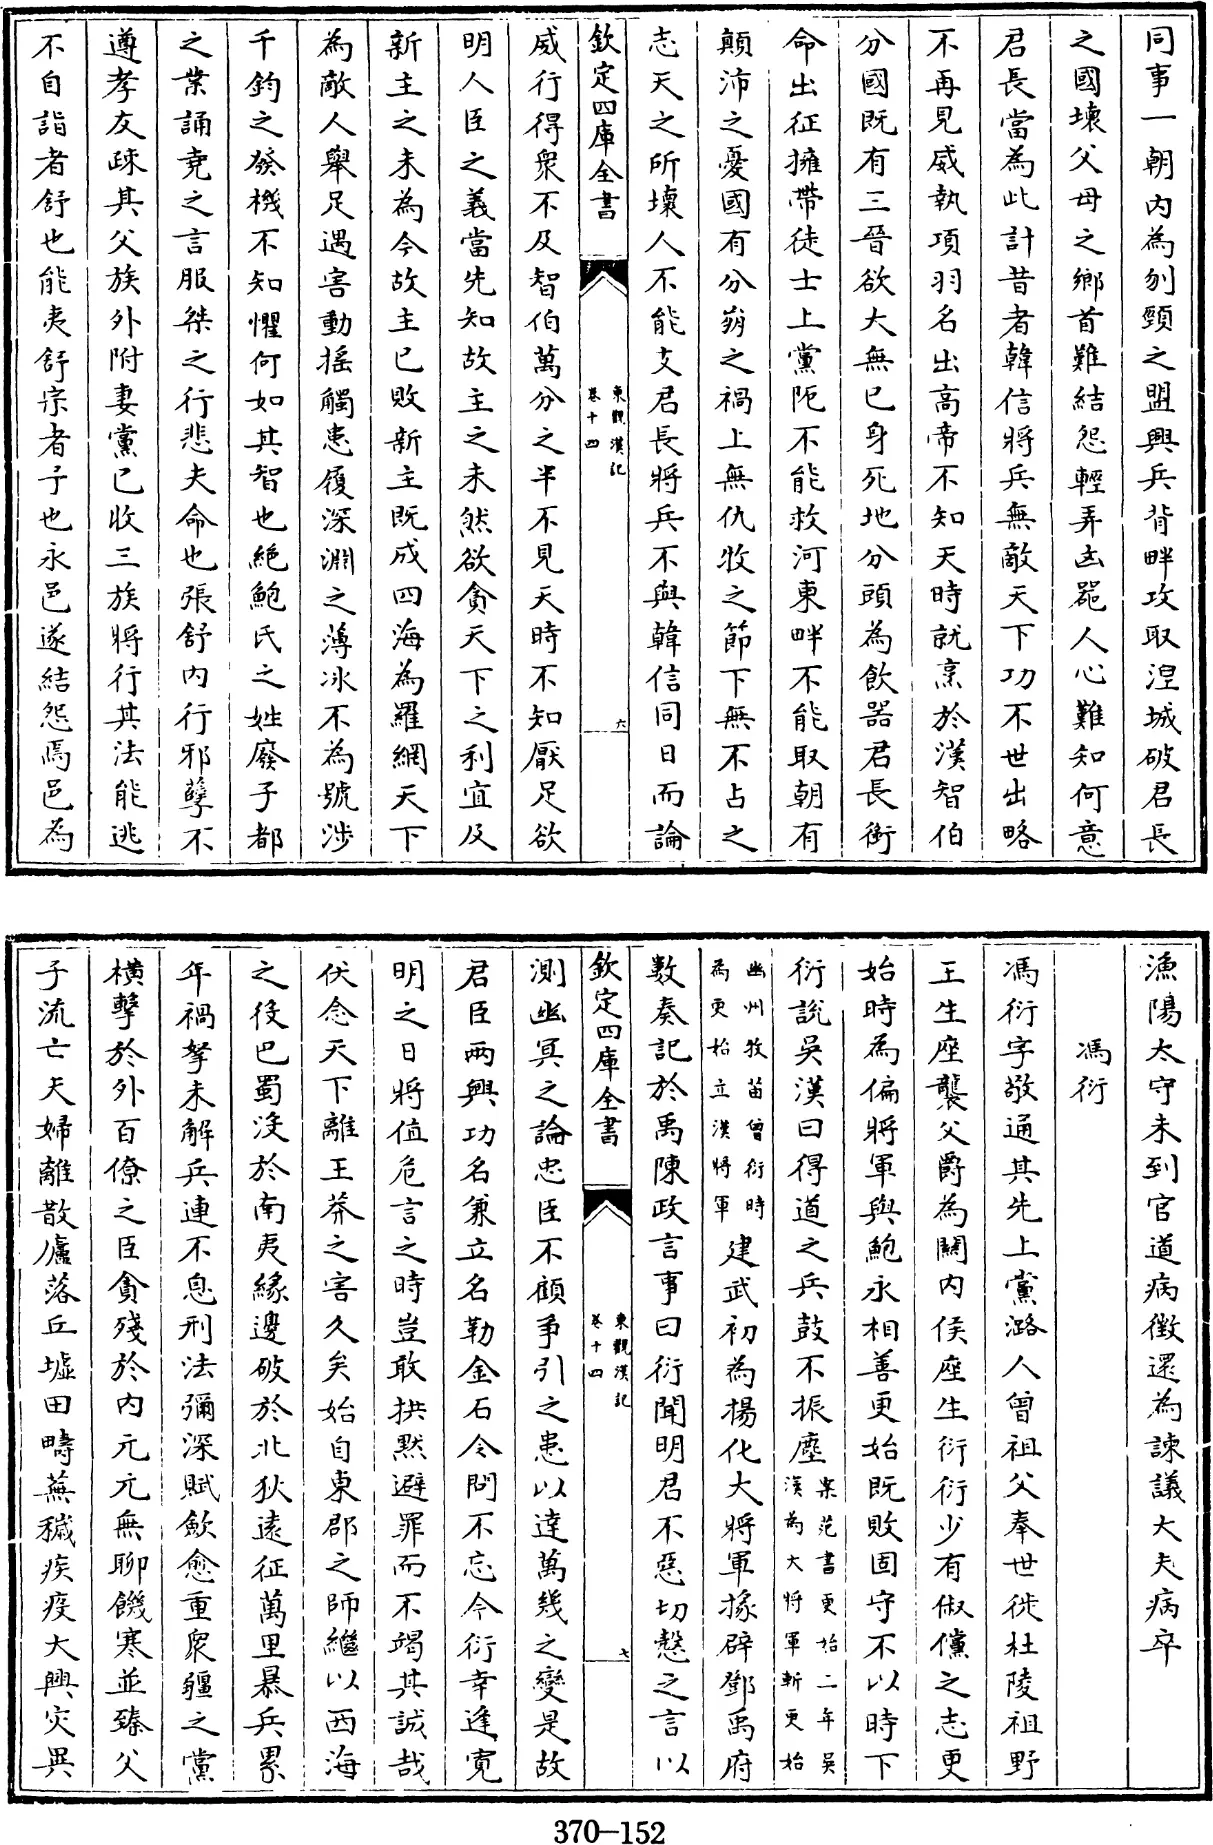 同事一朝内為刎頸之盟興兵背畔攻取涅城破君長
之國壊父母之鄉首難結怨輕弄凶器人心難知何意
君長當為此計昔者韓信將兵無敵天下功不世出略
不再見威執項羽名出高帝不知天時就烹於漢智伯
分國既有三晉欲大無已身死地分頭為飲器君長銜
命出征擁帶徒士上黨阨不能救河東畔不能取朝有
顛沛之憂國有分崩之禍上無仇牧之節下無不占之
志天之所壊人不能支君長將兵不與韓信同日而論
欽定四庫全書
東觀漢記
卷十四
六
威行得衆不及智伯萬分之半不見天時不知厭足欲
明人臣之義當先知故主之未然欲貪天下之利宜及
新主之未為今故主已敗新主既成四海為羅網天下
為敵人舉足遇害動揺觸患履深淵之薄冰不為號涉
千鈞之發機不知懼何如其智也絶鮑氏之姓廢子都
之業誦堯之言服桀之行悲夫命也張舒内行邪孽不
遵孝友疎其父族外附妻黨已收三族將行其法能逃
不自詣者舒也能夷舒宗者予也永邑遂結怨焉邑為
漁陽太守未到官道病徵還為諫議大夫病卒
馮衍
馮衍字敬通其先上黨潞人曾祖父奉世徙杜陵祖野
王生座襲父爵為關内侯座生衍衍少有俶儻之志更
始時為偏將軍與鮑永相善更始既敗固守不以時下
衍說吳漢曰得道之兵鼓不振塵案范書更始二年吳
漢為大將軍斬更始
幽州牧苗曾衍時
為更始立漢將軍建武初為揚化大將軍掾辟鄧禹府
數奏記於禹陳政言事曰衍聞明君不惡切慤之言以
欽定四庫全書
東觀漢記
卷十四
七
測幽冥之論忠臣不顧争引之患以達萬幾之變是故
君臣兩興功名兼立名勒金石令問不忘今衍幸逢寛
明之日將值危言之時豈敢拱黙避罪而不竭其誠哉
伏念天下離王莽之害久矣始自東郡之師繼以西海
之役巴蜀没於南夷緣邊破於北狄遠征萬里暴兵累
年禍拏未解兵連不息刑法彌深賦歛愈重衆彊之黨
横擊於外百僚之臣貪殘於内元元無聊饑寒並臻父
子流亡夫婦離散廬落丘墟田疇蕪穢疾疫大興災異
370-152